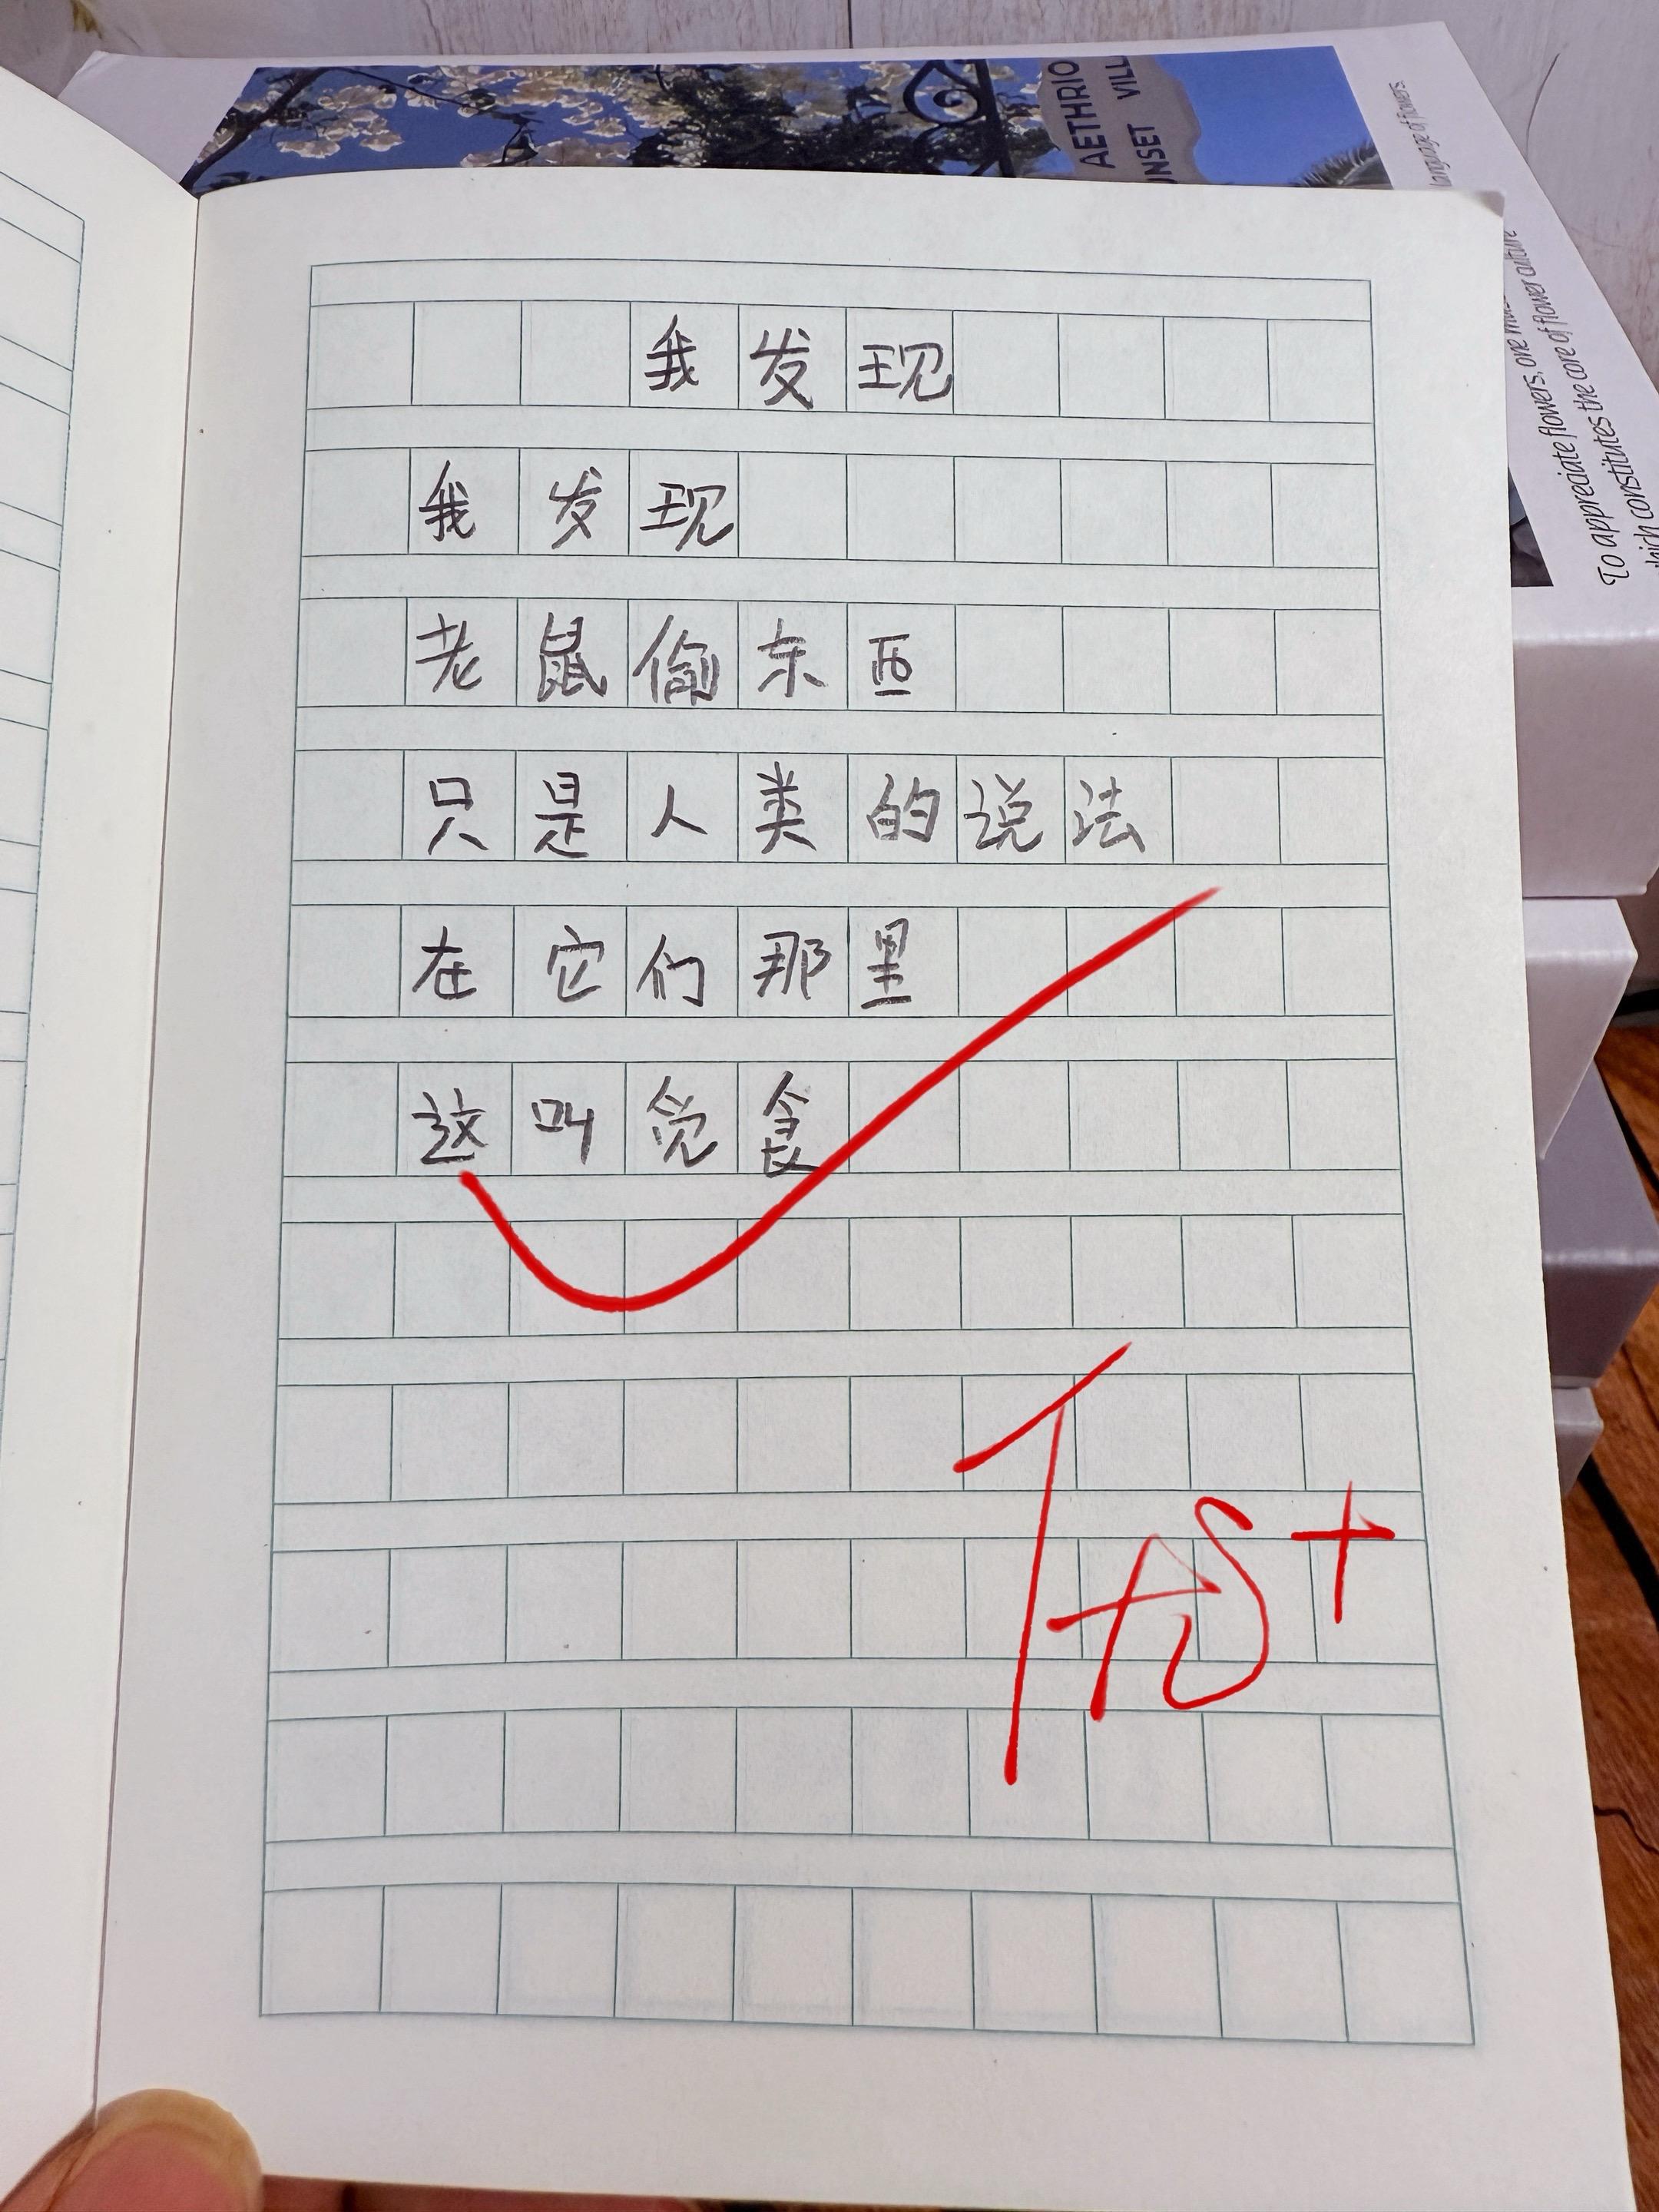 AETHRIO
UNSET VILL
language of flowers.
To appreciate flowers, one
which constitutes the core of flower culture
我发现
我发现
老鼠偷东西
只是人类的说法
在它们那里
这叫觅食
优+